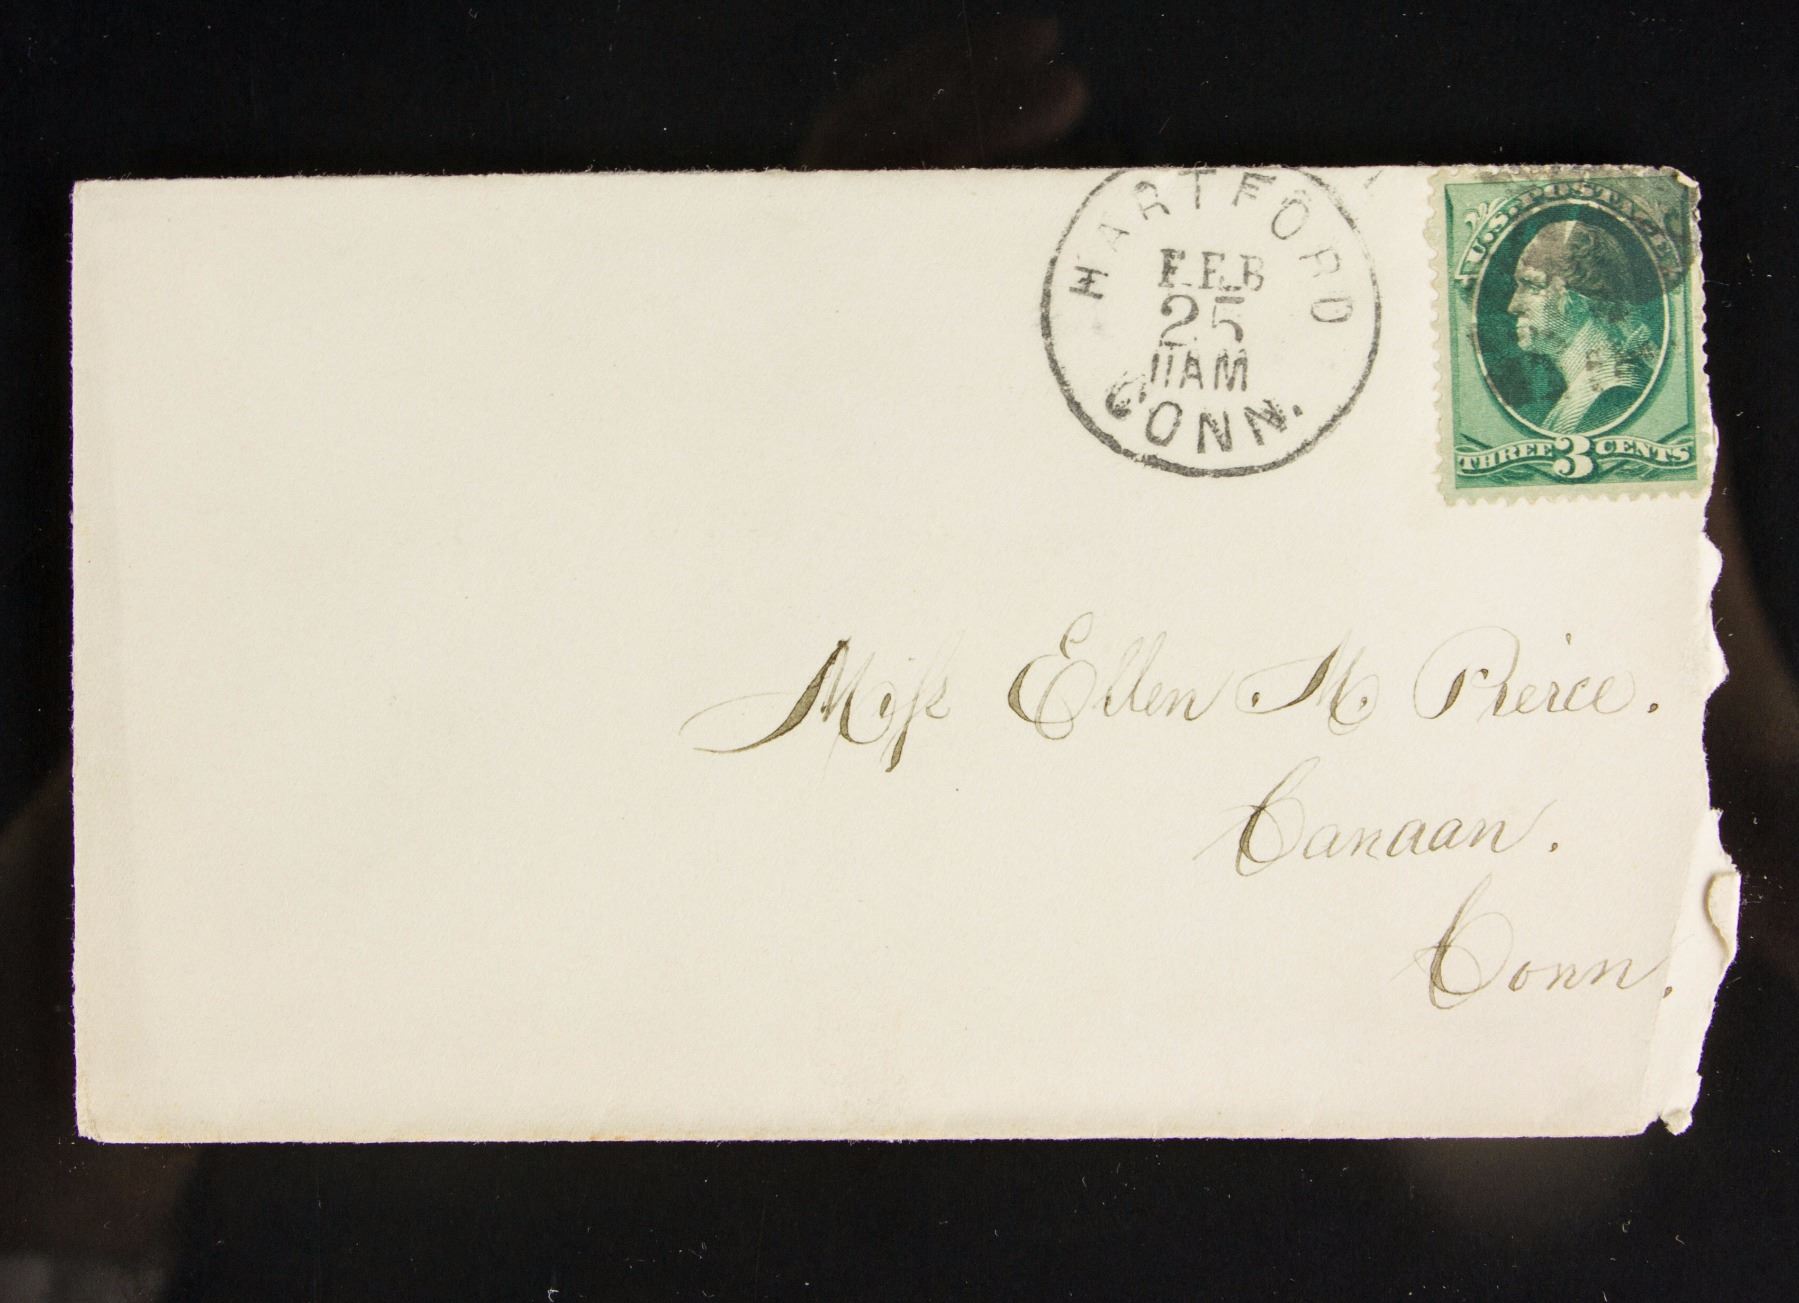 HARTFORD
FEB
25
11AM
CONN.
U.S. POSTAGE
THREE 3 CENTS
Miſs Ellen M. Pierce.
Canaan.
Conn.